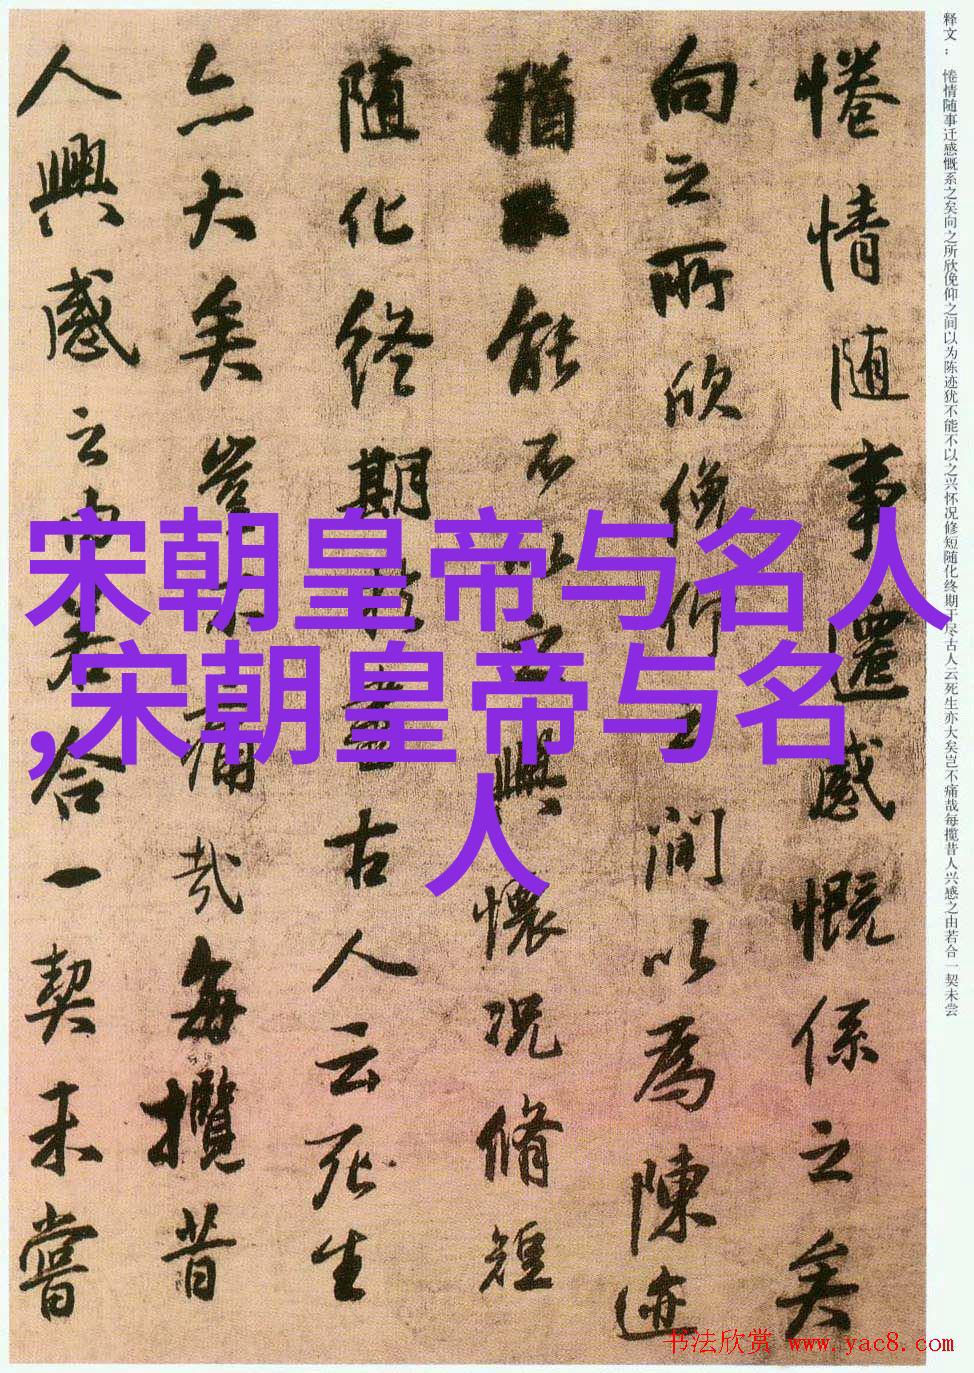 释文：惓情随事迁感慨系之矣向之所欣俛仰之间以为陈迹犹不能不以之兴怀况修短随化终期于尽古人云死生亦大矣岂不痛哉每揽昔人兴感之由若合一契未尝
惓情随事遷感慨係之矣
向之所欣俛仰之間以為陳迹
猶不能不以之興懷况脩短
随化終期於盡古人云死生
亦大矣豈不痛哉每攬昔
人興感之由若合一契未嘗
宋朝皇帝与名人
,宋朝皇帝与名
人
书法欣赏 www.yac8.com